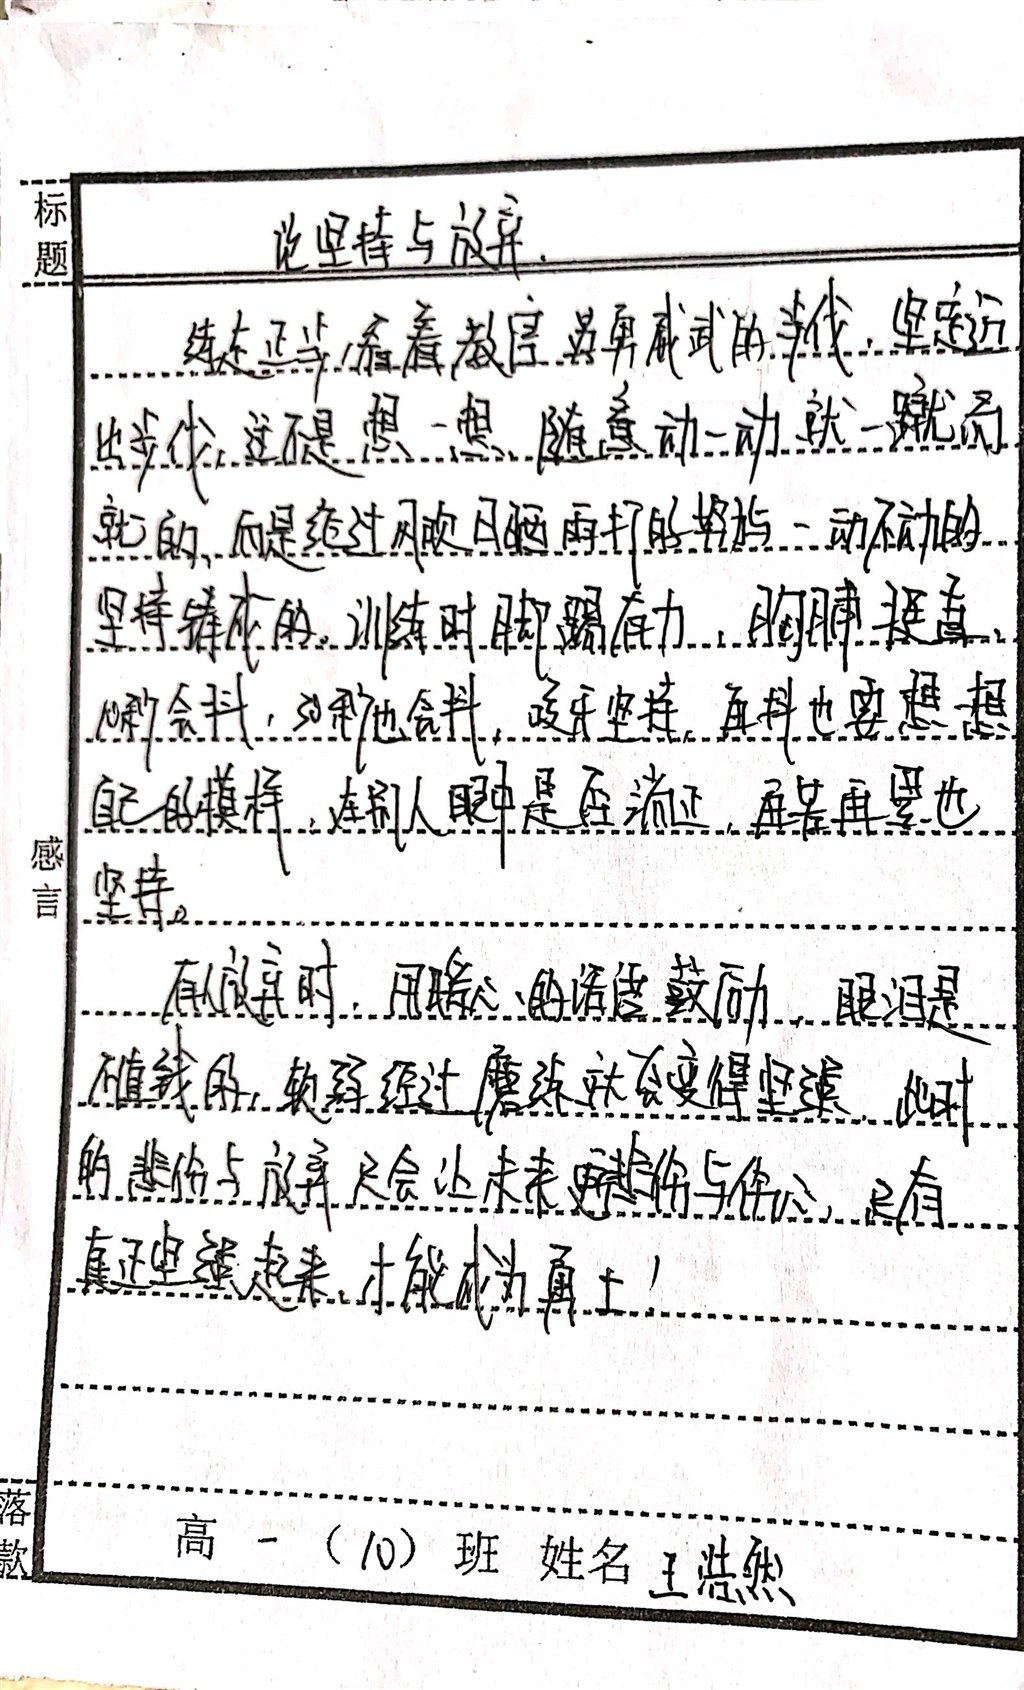 标题
说坚持与放弃.
练走正步,看着教官英勇威武的步伐,坚定迈
出步伐,这不是想一想,随意动一动就一蹴而
就的,而是经过风吹日晒雨打的努力与一动不动的
坚持铸成的。训练时脚踢有力,胸脯挺直、
会抖,也会抖,咬牙坚持,再抖也要想一想
自己的模样,在别人眼中是否端正,再苦再累也
坚持。
感言
有人放弃时,用暖心的话语鼓励,眼泪是
不值钱的,软弱经过磨练就会变得坚强,此时
的悲伤与放弃只会让未来更悲伤与伤心,只有
真正坚强起来,才能成为勇士!
落款
高一(10)班 姓名王浩然